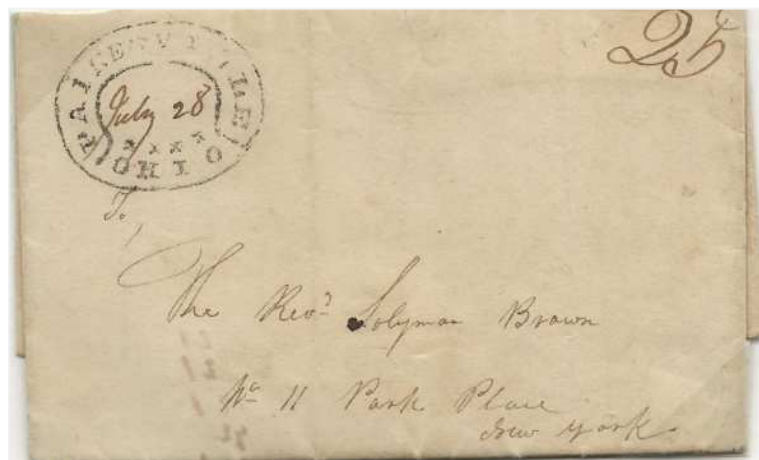 PAINESVILLE
25
July 28
OHIO
To,
The Revd Solyman Brown
No 11 Park Place
New York.